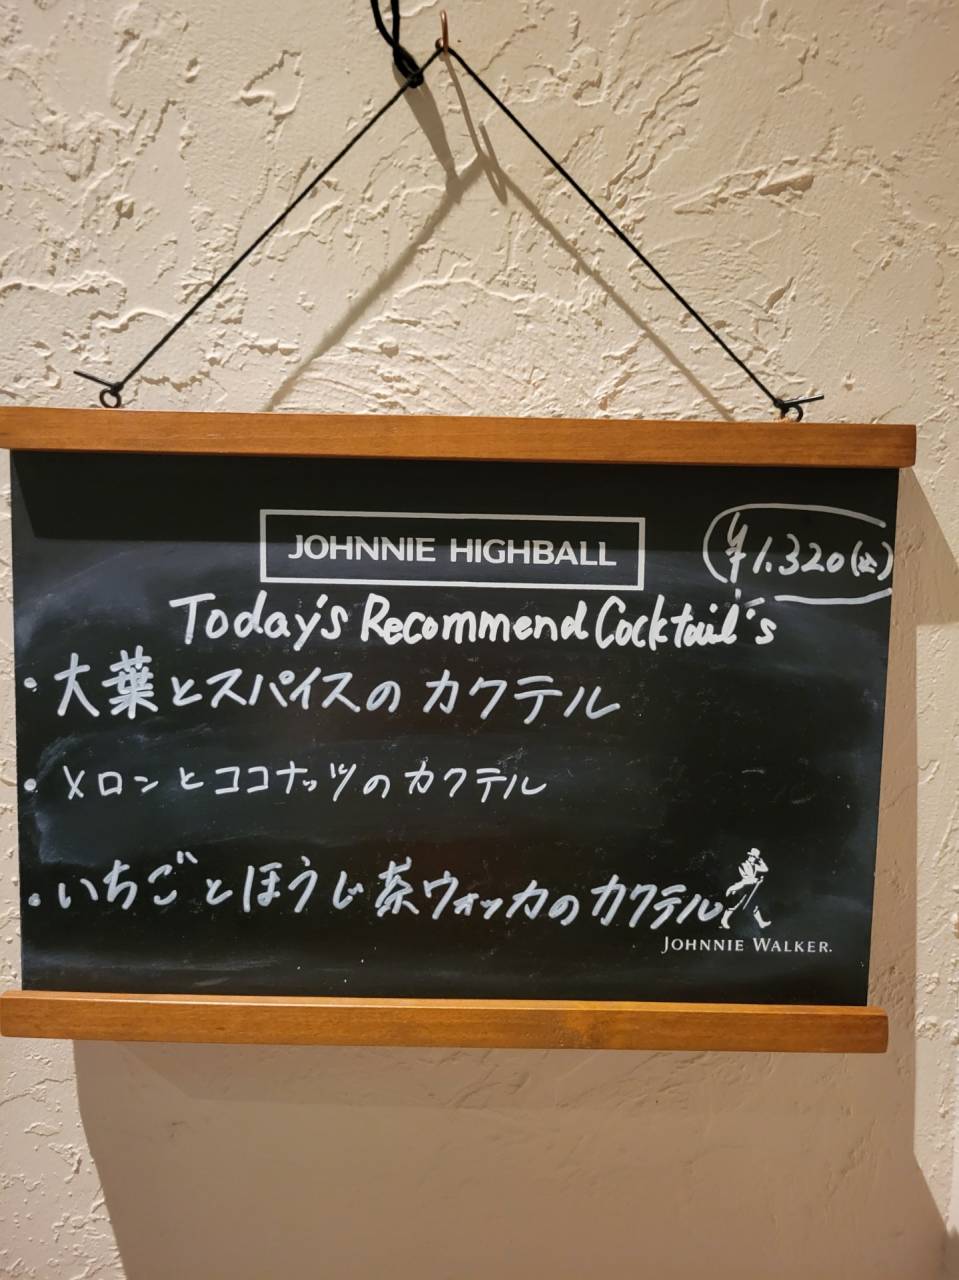 JOHNNIE HIGHBALL
¥1.320(込)
Today's Recommend Cocktail's
・大葉とスパイスのカクテル
・メロンとココナッツのカクテル
・いちごとほうじ茶ウォッカのカクテル
JOHNNIE WALKER.